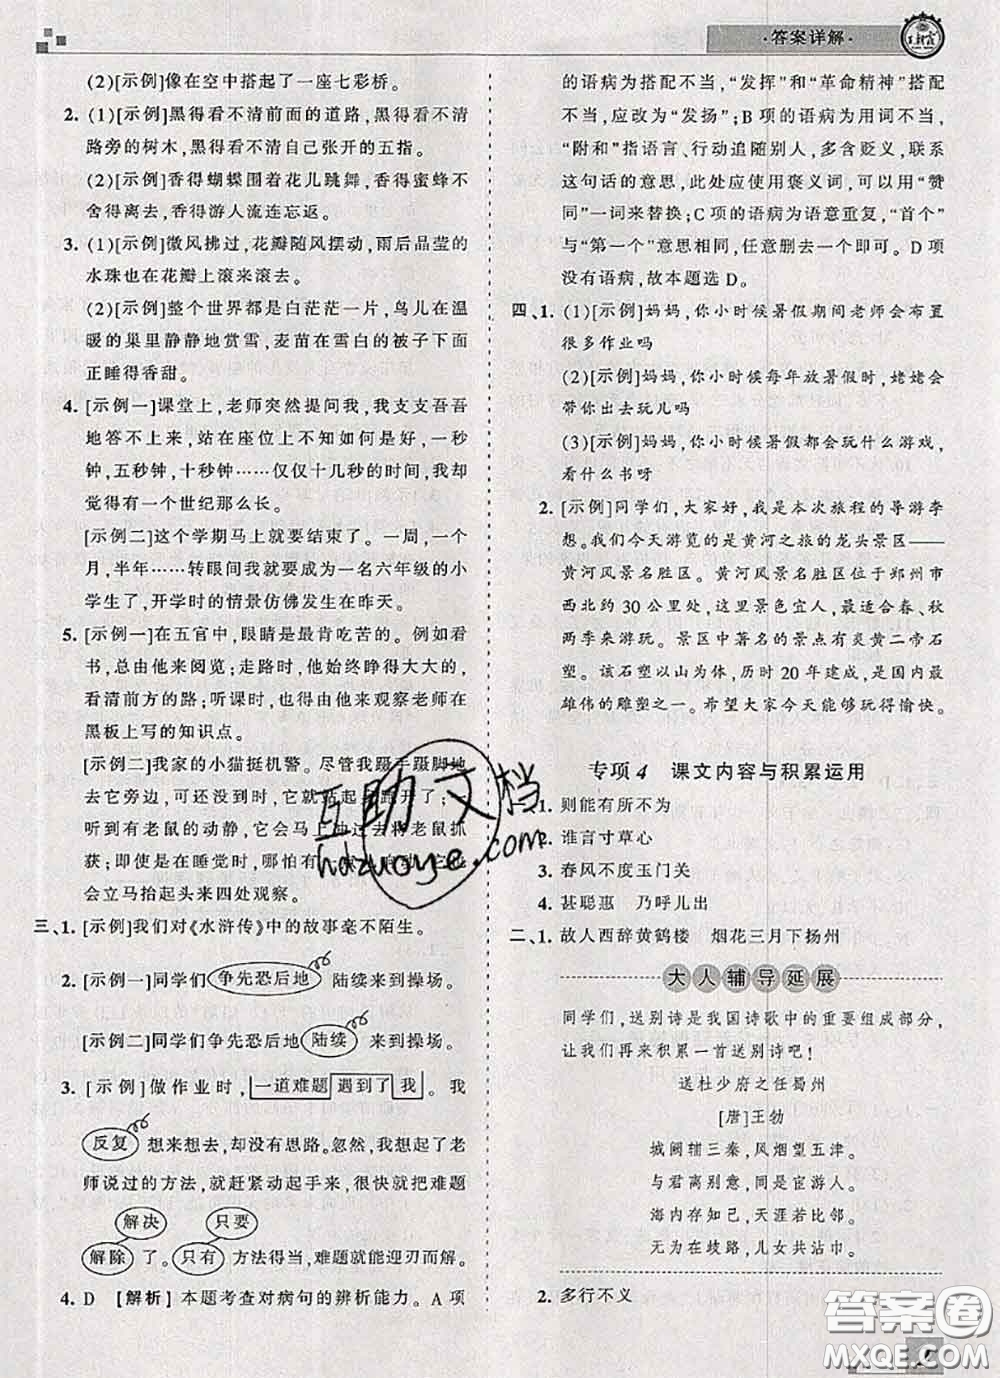 ·答案详解·
王朝霞
(2)[示例]像在空中搭起了一座七彩桥。
2. (1)[示例]黑得看不清前面的道路,黑得看不清
路旁的树木,黑得看不清自己张开的五指。
(2)[示例]香得蝴蝶围着花儿跳舞,香得蜜蜂不
舍得离去,香得游人流连忘返。
3. (1)[示例]微风拂过,花瓣随风摆动,雨后晶莹的
水珠也在花瓣上滚来滚去。
(2)[示例]整个世界都是白茫茫一片,鸟儿在温
暖的巢里静静地赏雪,麦苗在雪白的被子下面
正睡得香甜。
4. [示例一]课堂上,老师突然提问我,我支支吾吾
地答不上来,站在座位上不知如何是好,一秒
钟,五秒钟,十秒钟……仅仅十几秒的时间,我却
觉得有一个世纪那么长。
[示例二]这个学期马上就要结束了。一周,一个
月,半年……转眼间我就要成为一名六年级的小
学生了,开学时的情景仿佛发生在昨天。
5. [示例一]在五官中,眼睛是最肯吃苦的。例如看
书,总由他来阅览;走路时,他始终睁得大大的,
看清前方的路;听课时,也得由他来观察老师在
黑板上写的知识点。
[示例二]我家的小猫挺机警。尽管我蹑手蹑脚
地在它旁边,可它就站起来跑开了;一
听到有老鼠的动静,它会马上冲过去将老鼠抓
获;即使是在睡觉时,哪怕有一点点启动,它也
会立马抬起头来四处观察。
三、1. [示例]我们对《水浒传》中的故事毫不陌生。
2. [示例一]同学们争先恐后地陆续来到操场。
[示例二]同学们争先恐后地陆续来到操场。
3. [示例]做作业时,一道难题遇到了我。我
反复想来想去,却没有思路。忽然,我想到了老
师说过的方法,就赶紧动起手来,很快就把难题
解决 只要
解除了。只有方法得当,难题就能迎刃而解。
4. D [解析]本题考查对病句的辨析能力。A 项
的语病为搭配不当,“发挥”和“革命精神”搭配
不当,应改为“发扬”;B 项的语病为用词不当,
“附和”指语言、行动追随别人,多含贬义,联系
这句话的意思,此处应使用褒义词,可以用“赞
同”一词来替换;C 项的语病为语意重复,“首个”
与“第一个”意思相同,任意删去一个即可。D 项
没有语病,故本题选 D。
四、1. (1)[示例]妈妈,你小时候暑假期间老师会布置
很多作业吗
(2)[示例]妈妈,你小时候每年放暑假时,姥姥会
带你出去玩儿吗
(3)[示例]妈妈,你小时候暑假都会玩什么游戏,
看什么书呀
2. [示例]同学们,大家好,我是本次旅程的导游李
想。我们今天游览的是黄河之旅的龙头景区——
黄河风景名胜区。黄河风景名胜区位于郑州市
西北约 30 公里处,这里景色宜人,最适合春、秋
两季来游玩。景区中著名的景点有炎黄二帝石
塑。该石塑以山为体,历时 20 年建成,是国内最
雄伟的雕塑之一。希望大家今天能够玩得愉快。
专项4 课文内容与积累运用
一、1. 则能有所不为
2. 谁言寸草心
3. 春风不度玉门关
4. 甚聪惠 乃呼儿出
二、1. 故人西辞黄鹤楼 烟花三月下扬州
大人辅导延展
同学们,送别诗是我国诗歌中的重要组成部分,
让我们再来积累一首送别诗吧!
送杜少府之任蜀州
[唐]王勃
城阙辅三秦,风烟望五津。
与君离别意,同是宦游人。
海内存知己,天涯若比邻。
无为在歧路,儿女共沾巾。
2. 多行不义
互助文档
hdzuoye.com
答案圈
MXQE.COM